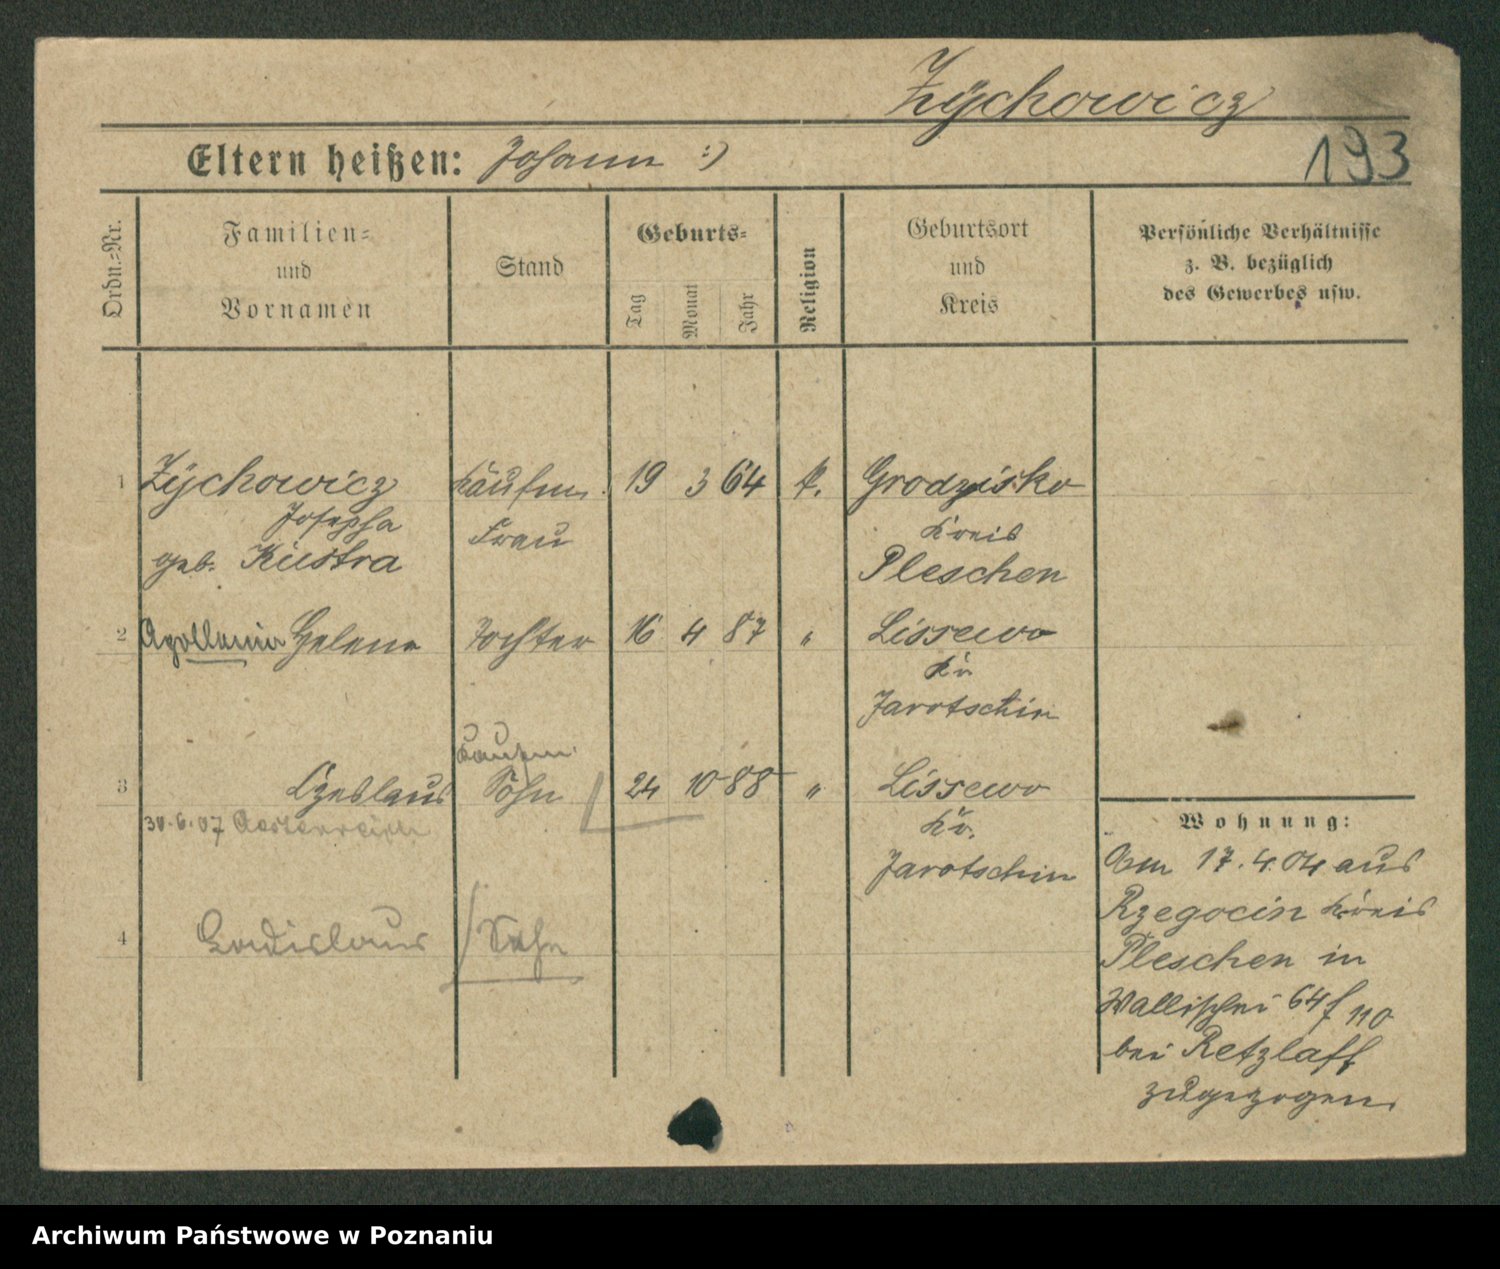 Zÿchowicz
Eltern heißen: Johann :)
193
Ordn.-Nr.
Familien-
und
Vornamen
Stand
Geburts-
Tag
Monat
Jahr
Religion
Geburtsort
und
Kreis
Persönliche Verhältnisse
z. B. bezüglich
des Gewerbes usw.
1 Zÿchowicz Kaufm. 19 3 64 k. Grodzisko
Josepha Frau Kreis
geb. Kustra Pleschen
2 Apollonia Helena Tochter 16 4 87 " Lissewo
Kr
Jarotschin
Kaufm.
3 Czeslaus Sohn 24 10 88 " Lissewo
30.6.07 Oesterreich Kr.
Jarotschin
4 Ladislaus Sohn
Wohnung:
Am 17.4.04 aus
Rzegocin Kreis
Pleschen in
Wallischei 64 f 110
bei Retzlaff
zugezogen.
Archiwum Państwowe w Poznaniu